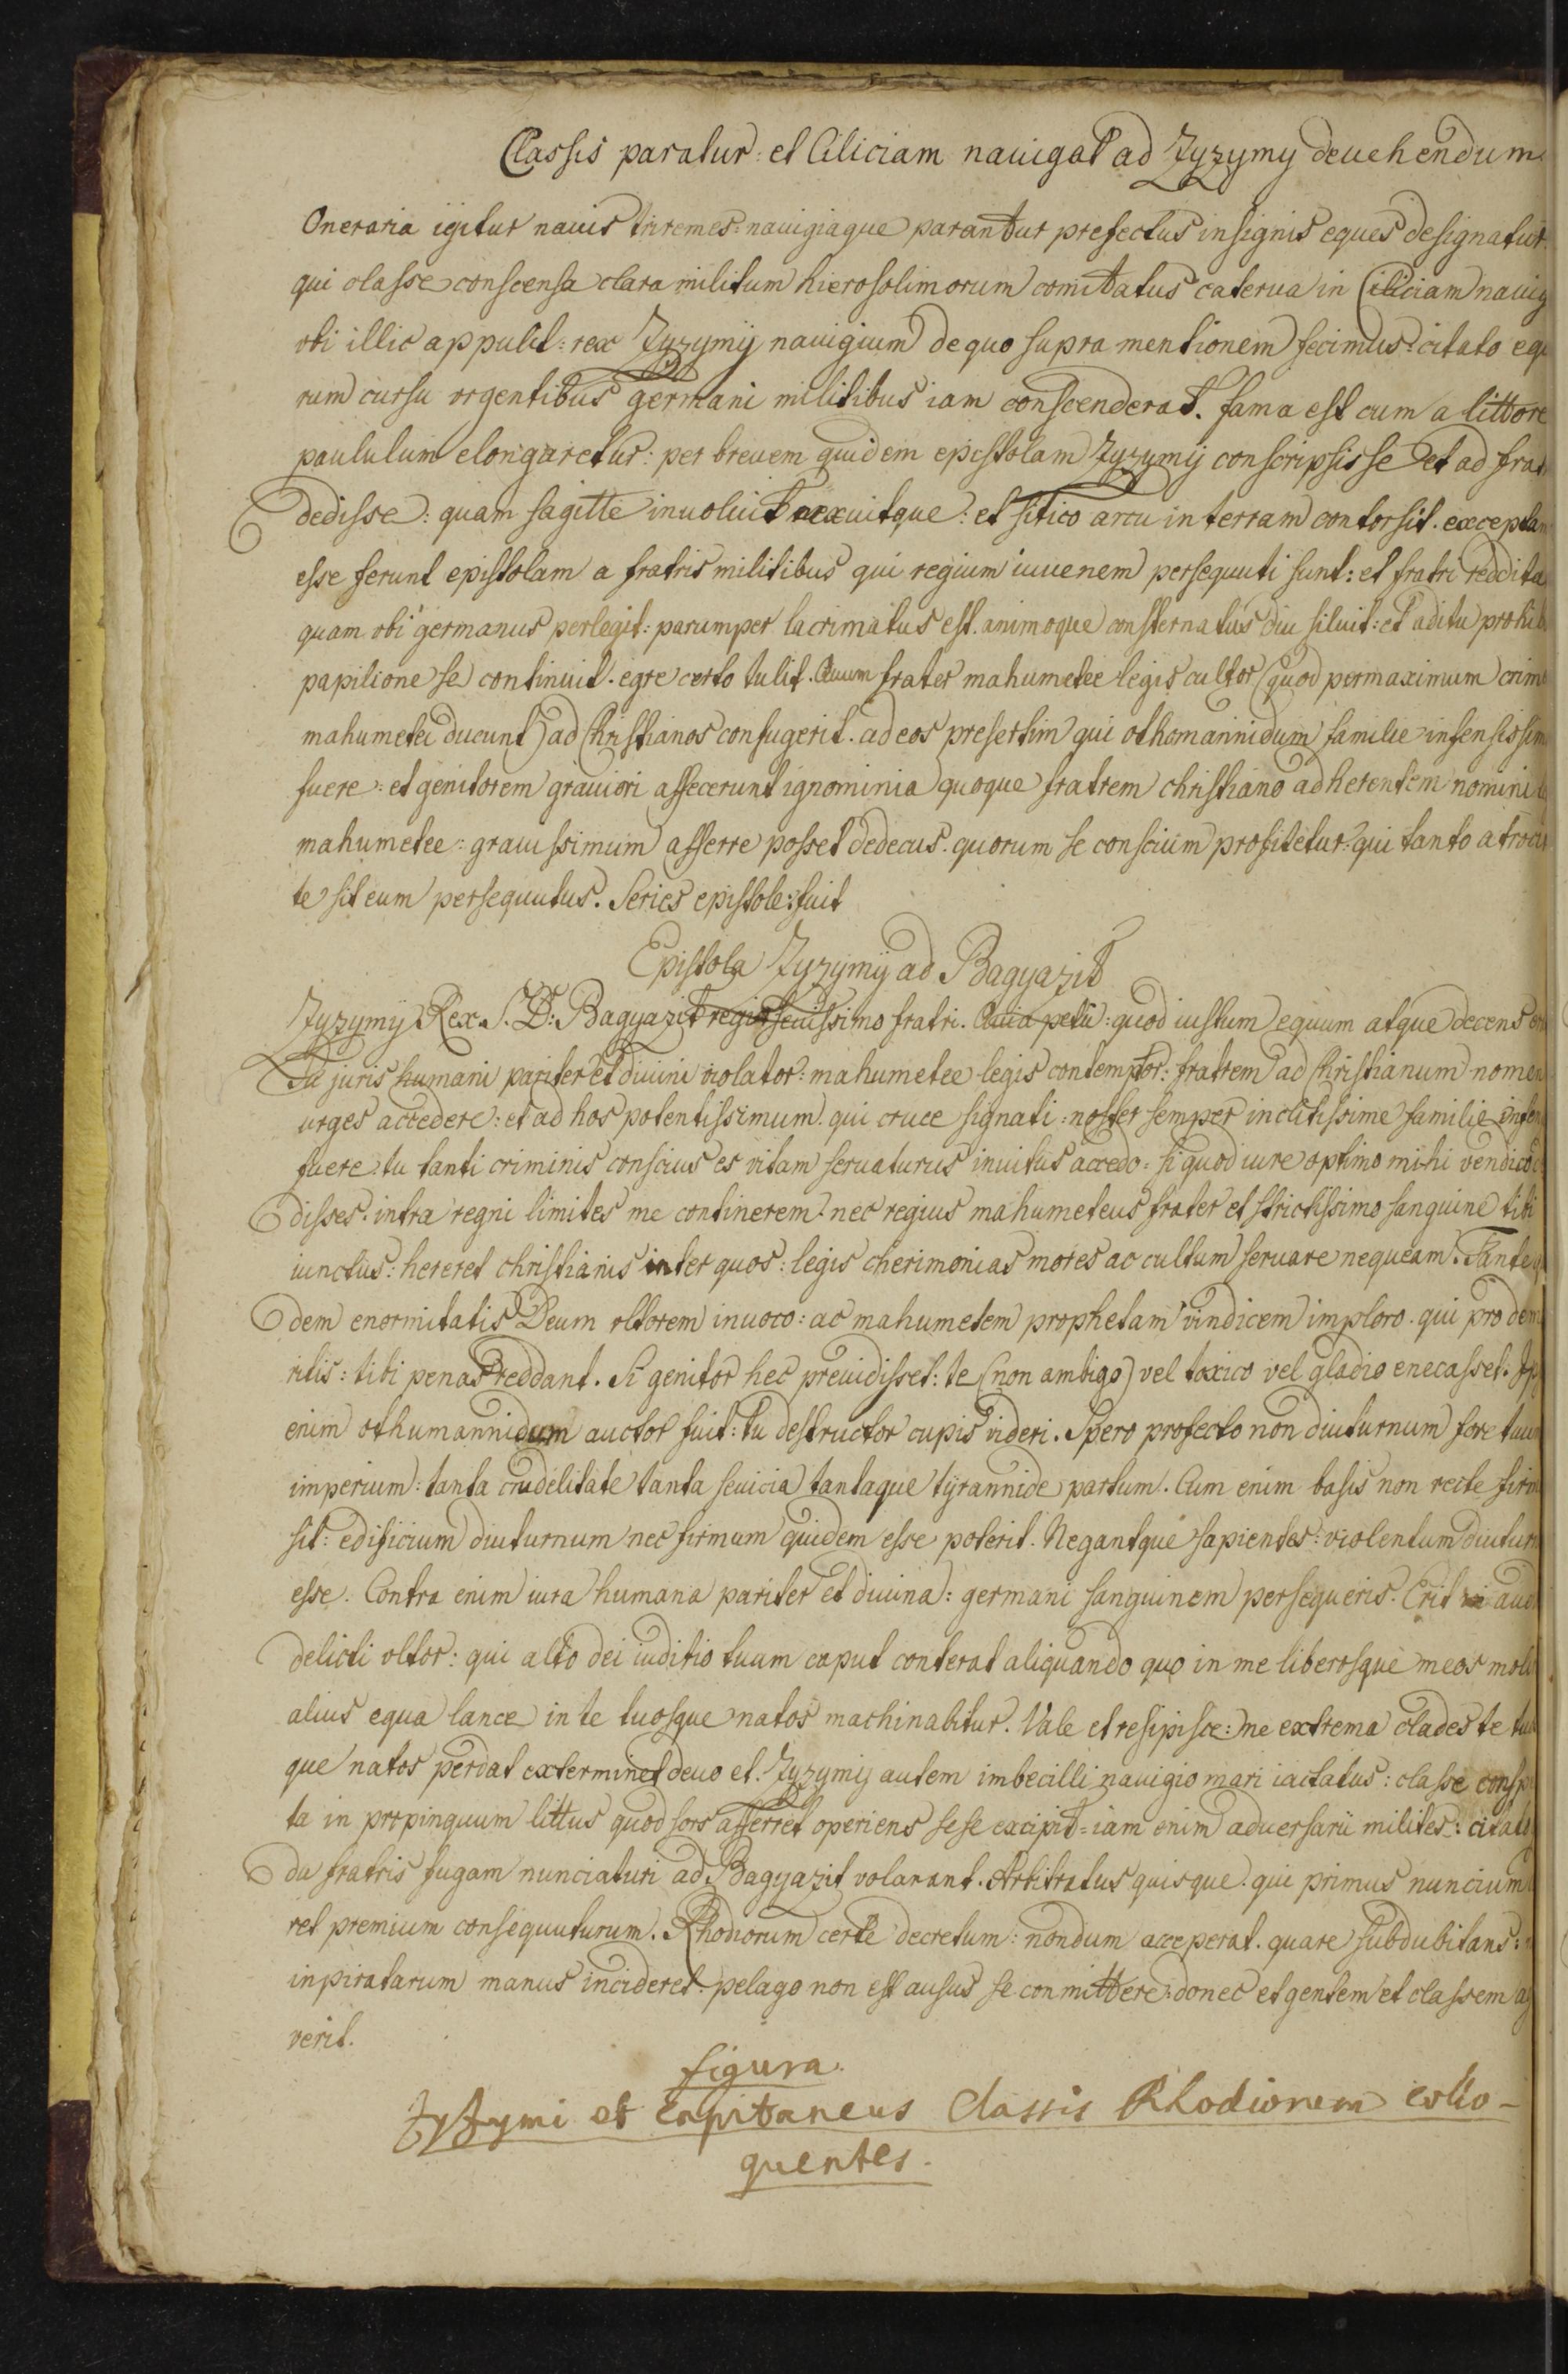 Classis paratur: et Ciliciam nauigat ad Zyzymy deuehendum
Oneraria igitur nauis triremes: nauigiaque parantur prefectus insignis eques designatur
qui classe conscensa clara militum hierosolimorum comitatus caterua in Ciliciam nauig
vbi illic appulit: rex Zyzymij nauigium de quo supra mentionem fecimus: citato equ
rum cursu vrgentibus germani militibus iam conscenderat. fama est cum a littore
paululum elongaretur: per breuem quidem epistolam Zyzymij conscripsisse et ad frat
dedisse: quam sagitte inuoluit nexuitque: et sitico arcu in terram contorsit. exceptam
esse ferunt epistolam a fratris militibus qui regium iuuenem persequuti sunt: et fratri reddita
quam vbi germanus perlegit: parumper lacrimatus est. animoque consternatus diu siluit: et aditu prohib
papilione se continuit. egre certo tulit. Quum frater mahumetee legis cultor (quod permaximum crime
mahumetei ducunt) ad Christianos confugerit. ad eos presertim qui othomannidum familie infensissim
fuere: et genitorem grauiori affecerunt ignominia quoque fratrem christiano adherentem nomini
mahumetee: grauissimum afferre posset dedecus. quorum se conscium profitetur: qui tanto atroci
te sit eum persequutus. Series epistole: fuit
Epistola Zyzymij ad Bagyazit
Zyzymij Rex. S. D: Bagyazit regi seuissimo fratri. Quia petii: quod iustum equum atque decens
Tu juris humani pariter et diuini violator: mahumetee legis contemptor: fratrem ad Christianum nomen
urges accedere: et ad hos potentissimum. qui cruce signati: noster semper inclitissime familie infen
fuere tu tanti criminis conscius es vitam seruaturus inuitus accedo: si quod iure optimo mihi vendico
disses. intra regni limites me continerem. nec regius mahumeteus frater et strictissimo sanguine tibi
iunctus: hereret christianis inter quos: legis cherimonias mores ac cultum seruare nequeam. Tante
dem enormitatis Deum vltorem inuoco: ac mahumetem prophetam vindicem imploro. qui pro dem
ritis: tibi penas reddant. Si genitor hec preuidisset: te (non ambigo) vel toxico vel gladio enecasset. Ip
enim othumannidum auctor fuit: tu destructor cupis videri. Spero profecto non diuturnum fore tuum
imperium: tanta crudelitate tanta seuicia tantaque tyrannide partum. Cum enim basis non recte firm
sit: edificium diuturnum nec firmum quidem esse poterit. Negantque sapientes: violentum diutur
esse. Contra enim iura humana pariter et diuina: germani sanguinem persequeris. Erit aud
delicti vltor: qui alto dei iuditio tuam caput conterat aliquando quo in me liberosque meos moli
alius equa lance in te tuosque natos machinabitur. Vale et resipisce: ne extrema clades te tu
que natos perdat exterminet deuo et. Zyzymij autem imbecilli nauigio mari iactatus: classe consp
ta in propinquum littus quod sors afferret operiens sese excipit: iam enim aduersarii milites: citat
du fratris fugam nunciaturi ad Bagyazit volarant. Arbitratus quisque. qui primus nuncium
ret premium consequuturum. Rhodiorum certe decretum: nondum acceperat. quare subdubitans:
in piratarum manus incideret: pelago non est ausus se conmittere: donec et gentem et classem ag
verit.
figura.
Zyzymi et Capitaneus Classis Rhodiorum collo-
quentes.